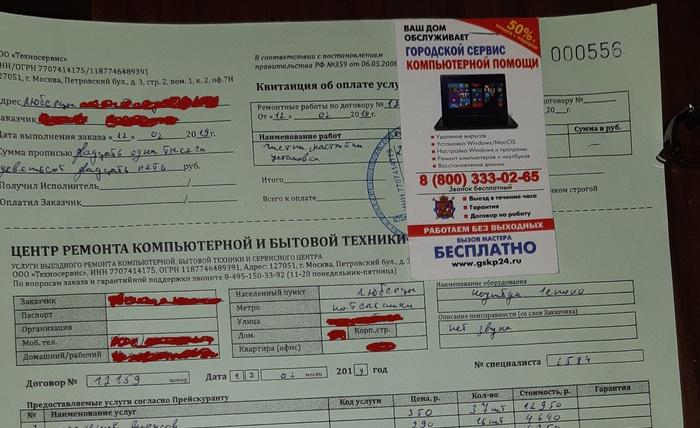 ООО «Техносервис»
ИНН/ОГРН 7707414175/1187746489391
127051, г. Москва, Петровский бул., д. 3, стр. 2, пом. 1, к. 2, оф.7И
Адрес Люберцы
Заказчик
Дата выполнения заказа «12» 02 2019г.
Сумма прописью двадцать одна тысяча
девятьсот двадцать пять руб.
Получил Исполнитель
Оплатил Заказчик
В соответствии с постановлением
правительства РФ №359 от 06.05.2008
Квитанция об оплате услу
Ремонтные работы по договору № 12
От «12» 02 2019г.
Наименование работ
чистка, настройка
установка
Итого
Всего к оплате
ИНН 7707414175
ВАШ ДОМ
ОБСЛУЖИВАЕТ
50%
ГОРОДСКОЙ СЕРВИС
КОМПЬЮТЕРНОЙ ПОМОЩИ
Удаление вирусов
Установка Windows/MacOS
Настройка Windows и программ
Ремонт компьютеров и ноутбуков
Восстановление данных
8 (800) 333-02-65
Звонок бесплатный
Выезд в течение часа
Гарантия
Договор на работу
РАБОТАЕМ БЕЗ ВЫХОДНЫХ
ВЫЗОВ МАСТЕРА
БЕСПЛАТНО
www.gskp24.ru
000556
20 г.
Сумма в руб.
ком строгой
ЦЕНТР РЕМОНТА КОМПЬЮТЕРНОЙ И БЫТОВОЙ ТЕХНИКИ
УСЛУГИ ВЫЕЗДНОГО РЕМОНТА КОМПЬЮТЕРНОЙ, БЫТОВОЙ ТЕХНИКИ И СЕРВИСНОГО ЦЕНТРА
ООО «Техносервис», ИНН 7707414175, ОГРН 1187746489391, Адрес: 127051, г. Москва, Петровский бул., д.
По вопросам заказа и гарантийной поддержки звоните 8-495-150-33-92 (11-20 понедельник-пятница)
Заказчик
Паспорт
Организация
Моб. тел.
Домашний/рабочий
Населенный пункт Люберцы
Метро котельники
Улица
Дом. Корп,стр.
Квартира (офис)
Наименование оборудования
ноутбук Lenovo
Описание неисправности (со слов Заказчика)
нет звука
№ специалиста 2594
Договор № 12159 номер Дата 12 02 месяц 2019 год
Предоставляемые услуги согласно Прейскуранту
№ Наименование услуг Код услуги Цена, р. Кол-во Стоимость, р. Гарантия
350 37 шт 12950
290 16 шт 4640